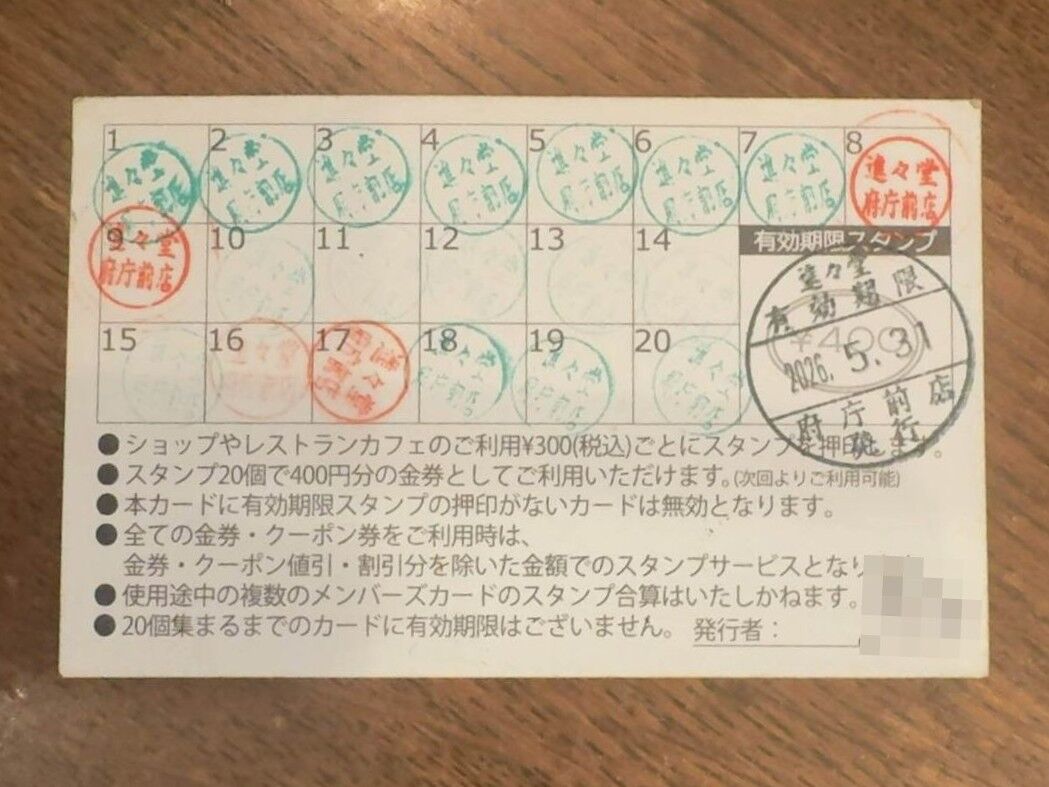 1 2 3 4 5 6 7 8
進々堂 府庁前店
進々堂 府庁前店
進々堂 府庁前店
進々堂 府庁前店
進々堂 府庁前店
進々堂 府庁前店
進々堂 府庁前店
進々堂 府庁前店
9 10 11 12 13 14
進々堂 府庁前店
有効期限スタンプ
進々堂
有効期限
¥400
2026. 5. 31
府庁前店
発行
15 16 17 18 19 20
進々堂
進々堂 府庁前店
進々堂
進々堂
進々堂
●ショップやレストランカフェのご利用¥300(税込)ごとにスタンプを押印します。
●スタンプ20個で400円分の金券としてご利用いただけます。(次回よりご利用可能)
●本カードに有効期限スタンプの押印がないカードは無効となります。
●全ての金券・クーポン券をご利用時は、
金券・クーポン値引・割引分を除いた金額でのスタンプサービスとなり
●使用途中の複数のメンバーズカードのスタンプ合算はいたしかねます。
●20個集まるまでのカードに有効期限はございません。 発行者：